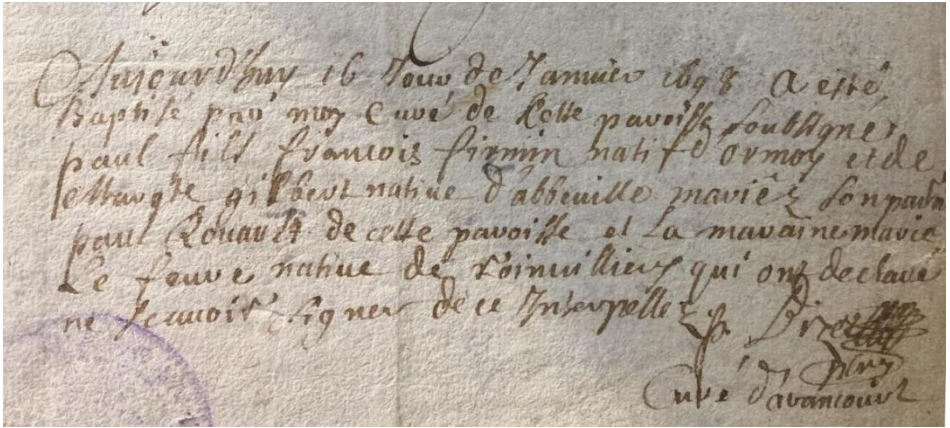 Aujourd'huy 16 Jour de Janvier 1698 a esté
Baptisé par moy Curé de Cette paroisse soubsigné
paul fils francois firmin natif d'ormoy et de
Margte gilbert native d'abbeuille mariéz son parin
paul Rouault de cette paroisse et la maraine marie
Le feuvre native de roinvilliers qui ont declaré
ne scauoir signer de ce Interpellez
Curé d'avancourt